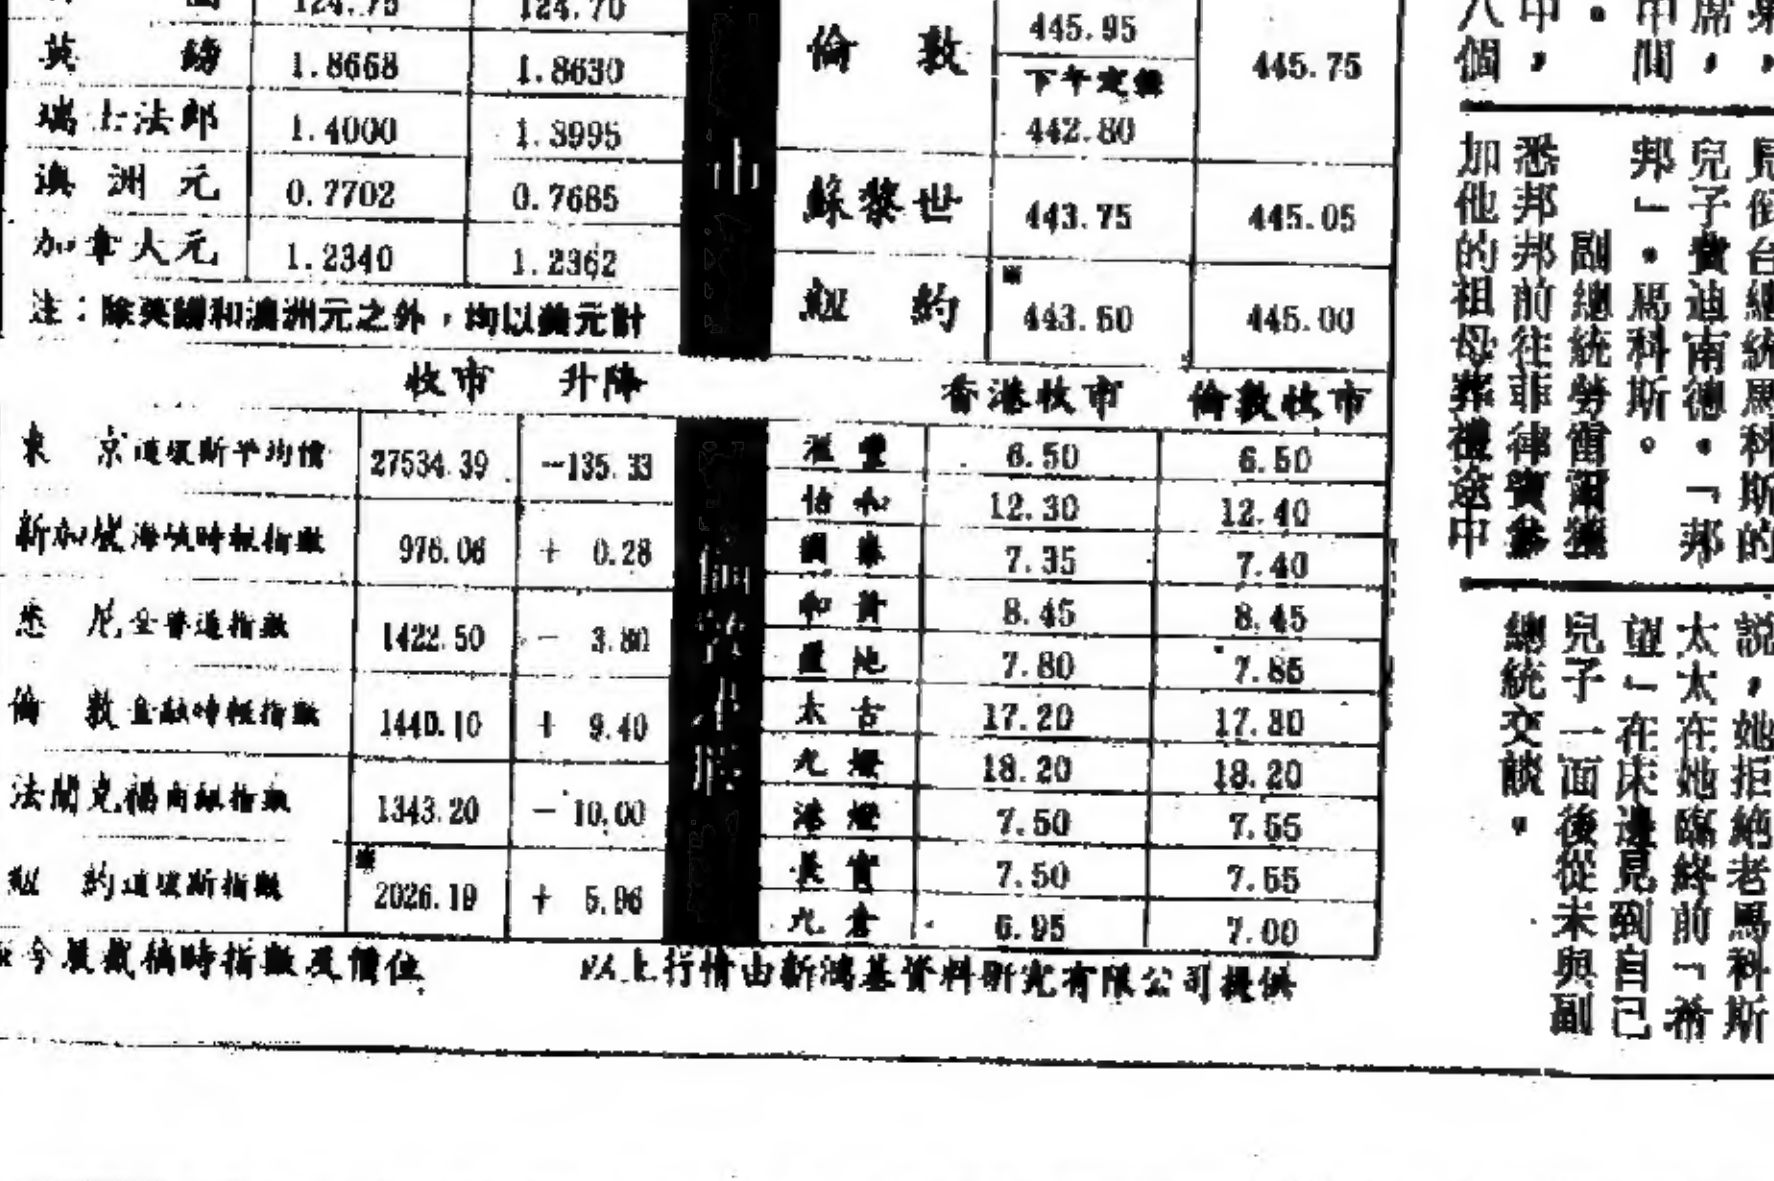 124.75 124.70
英鎊 1.8668 1.8630
瑞士法郎 1.4000 1.3995
澳洲元 0.7702 0.7685
加拿大元 1.2340 1.2362
注：除英鎊和澳洲元之外，均以美元計
445.95
倫敦 下午定價 445.75
442.80
蘇黎世 443.75 445.05
紐約 443.50 445.00
收市 升降
東京道瓊斯平均價 27534.39 -135.33
新加坡海峽時報指數 976.06 + 0.28
悉尼全普通指數 1422.50 - 3.80
倫敦金融時報指數 1440.10 + 9.40
法蘭克福商銀指數 1343.20 - 10.00
紐約道瓊斯指數 2026.19 + 5.96
今晨截稿時指數及價位
香港收市 倫敦收市
滙豐 6.50 6.50
怡和 12.30 12.40
國泰 7.35 7.40
和黃 8.45 8.45
置地 7.80 7.85
太古 17.20 17.30
九燈 18.20 18.20
港燈 7.50 7.55
長實 7.50 7.55
九倉 6.95 7.00
以上行情由新鴻基資料研究有限公司提供
見倒台總統馬科斯的
兒子費迪南德·「邦
邦」·馬科斯。
副總統勞雷爾獲
悉邦邦前往菲律賓參
加他的祖母葬禮途中
說，她拒絶老馬科斯
太太在她臨終前「希
望」在床邊見到自己
兒子一面後從未與副
總統交談。